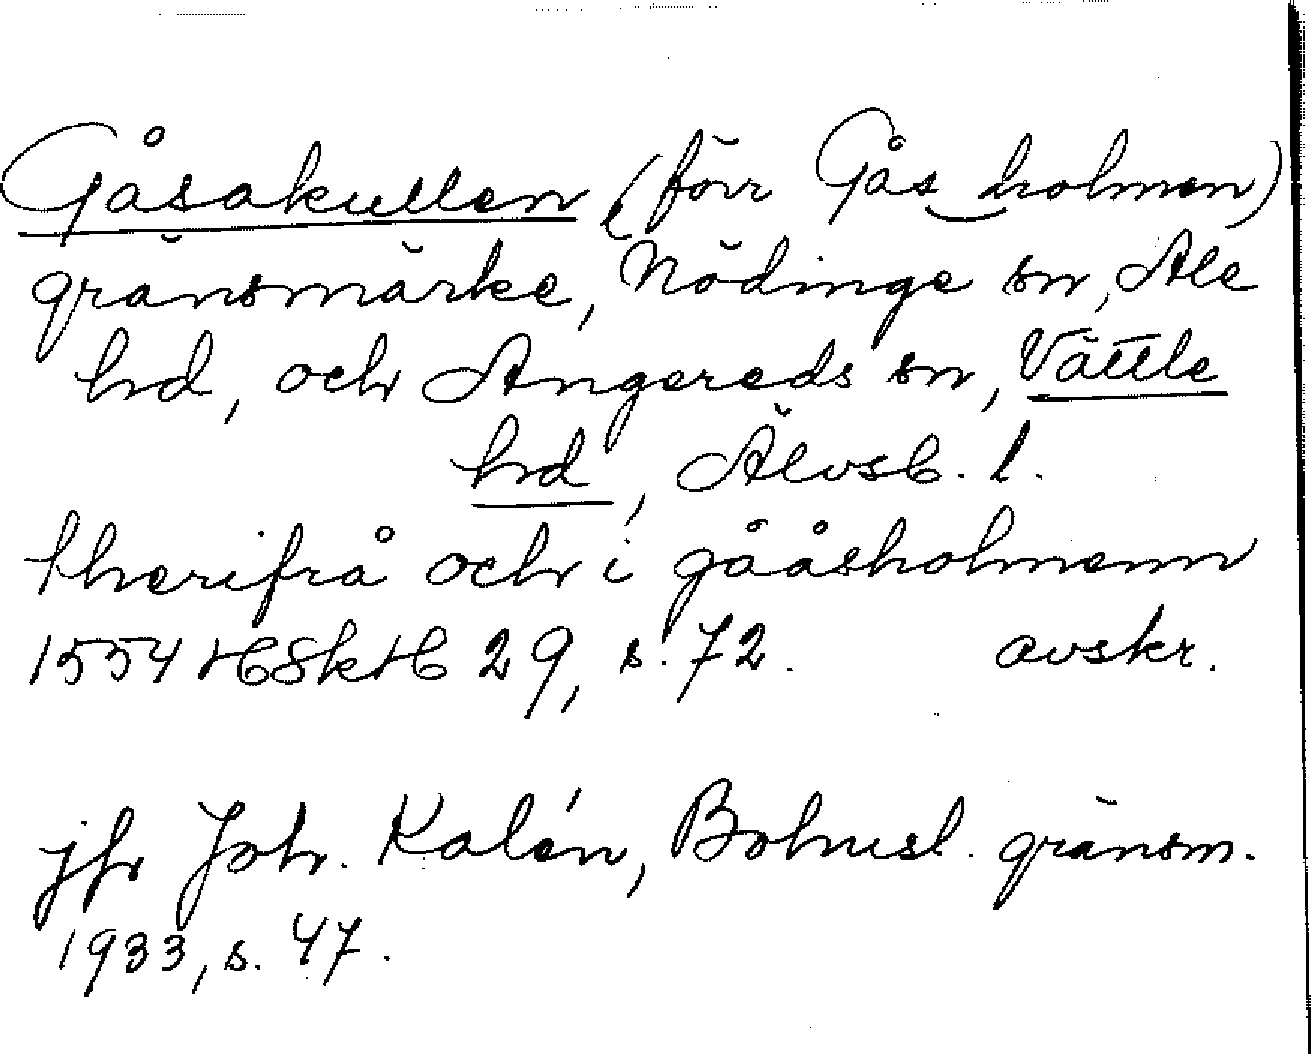 Gåsakullen (förr Gåsholmen)
gränsmärke, Nödinge sn, Ale
hd, och Angereds sn, Vättle
hd, Älvsb. l.
therifrå och i gååsholmenn
1554 HSkH 29, s. 72. avskr.
jfr Joh. Kalén, Bohusl. gränsm.
1933, s. 47.